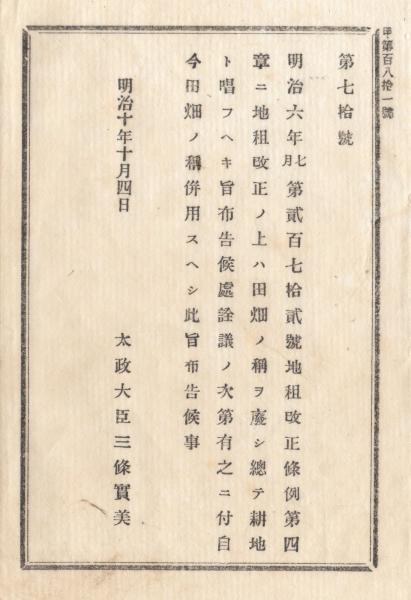 甲第百八拾一號
第七拾號
明治六年七月第貳百七拾貳號地租改正條例第四
章ニ地租改正ノ上ハ田畑ノ稱ヲ廢シ總テ耕地
ト唱フヘキ旨布告候處詮議ノ次第有之ニ付自
今田畑ノ稱併用スヘシ此旨布告候事
明治十年十月四日
太政大臣三條實美